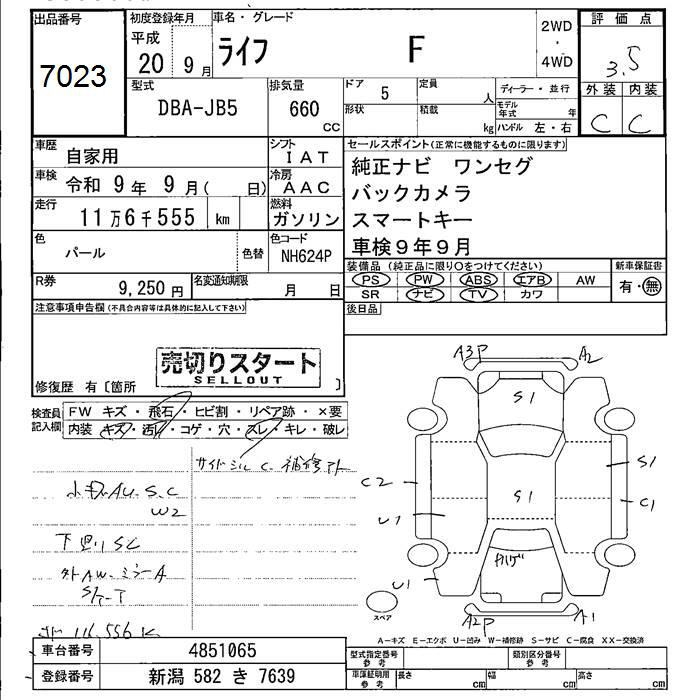 出品番号
7023
初度登録年月
平成
20 9月
車名・グレード
ライフ F
2WD
・
4WD
評価点
3.5
外装 内装
C C
型式
DBA-JB5
排気量
660
CC
ドア 5
定員 人
形状
積載 kg
ディーラー・並行
モデル年式 年
ハンドル 左・右
車歴 自家用
シフト IAT
車検 令和 9年 9月( 日)
冷房 AAC
走行 11万6千555 km
燃料 ガソリン
色 パール
色替
色コード NH624P
R券 9,250円
名変通知期限 月 日
セールスポイント(正常に機能するものに限ります)
純正ナビ ワンセグ
バックカメラ
スマートキー
車検9年9月
装備品(純正品に限り○をつけてください)
PS PW ABS エアB AW
SR ナビ TV カワ
新車保証書
有・無
後日品
注意事項申告欄(不具合内容等は具体的に記入して下さい)
売切りスタート
SELLOUT
修復歴 有〔箇所 〕
検査員記入欄
FW キズ・飛石・ヒビ割・リペア跡・×要
内装 キズ・汚れ・コゲ・穴・スレ・キレ・破レ
サイドシル C 補修アト
AU.S.C
W2
下廻り SC
外AW.ミラーA
116,556 K
A3P
A2
S1
S1
S1
C2
C1
U1
U1
A2P
A1
スペア
A-キズ E-エクボ U-凹み W-補修跡 S-サビ C-腐食 XX-交換済
車台番号 4851065
登録番号 新潟 582 き 7639
型式指定番号 参考
類別区分番号 参考
車庫証明用 参考
長さ cm
幅 cm
高さ cm